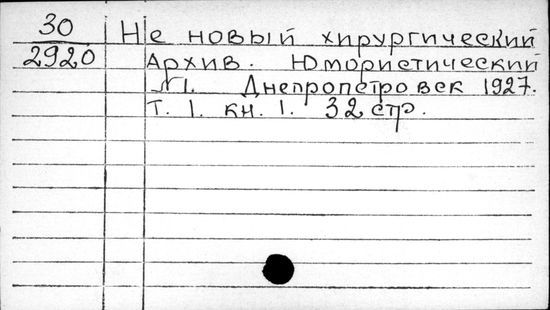 30 Не новый хирургический
2920 Архив. Юмористический
№1. Днепропетровск 1927.
Т. 1. кн. 1. 32 стр.